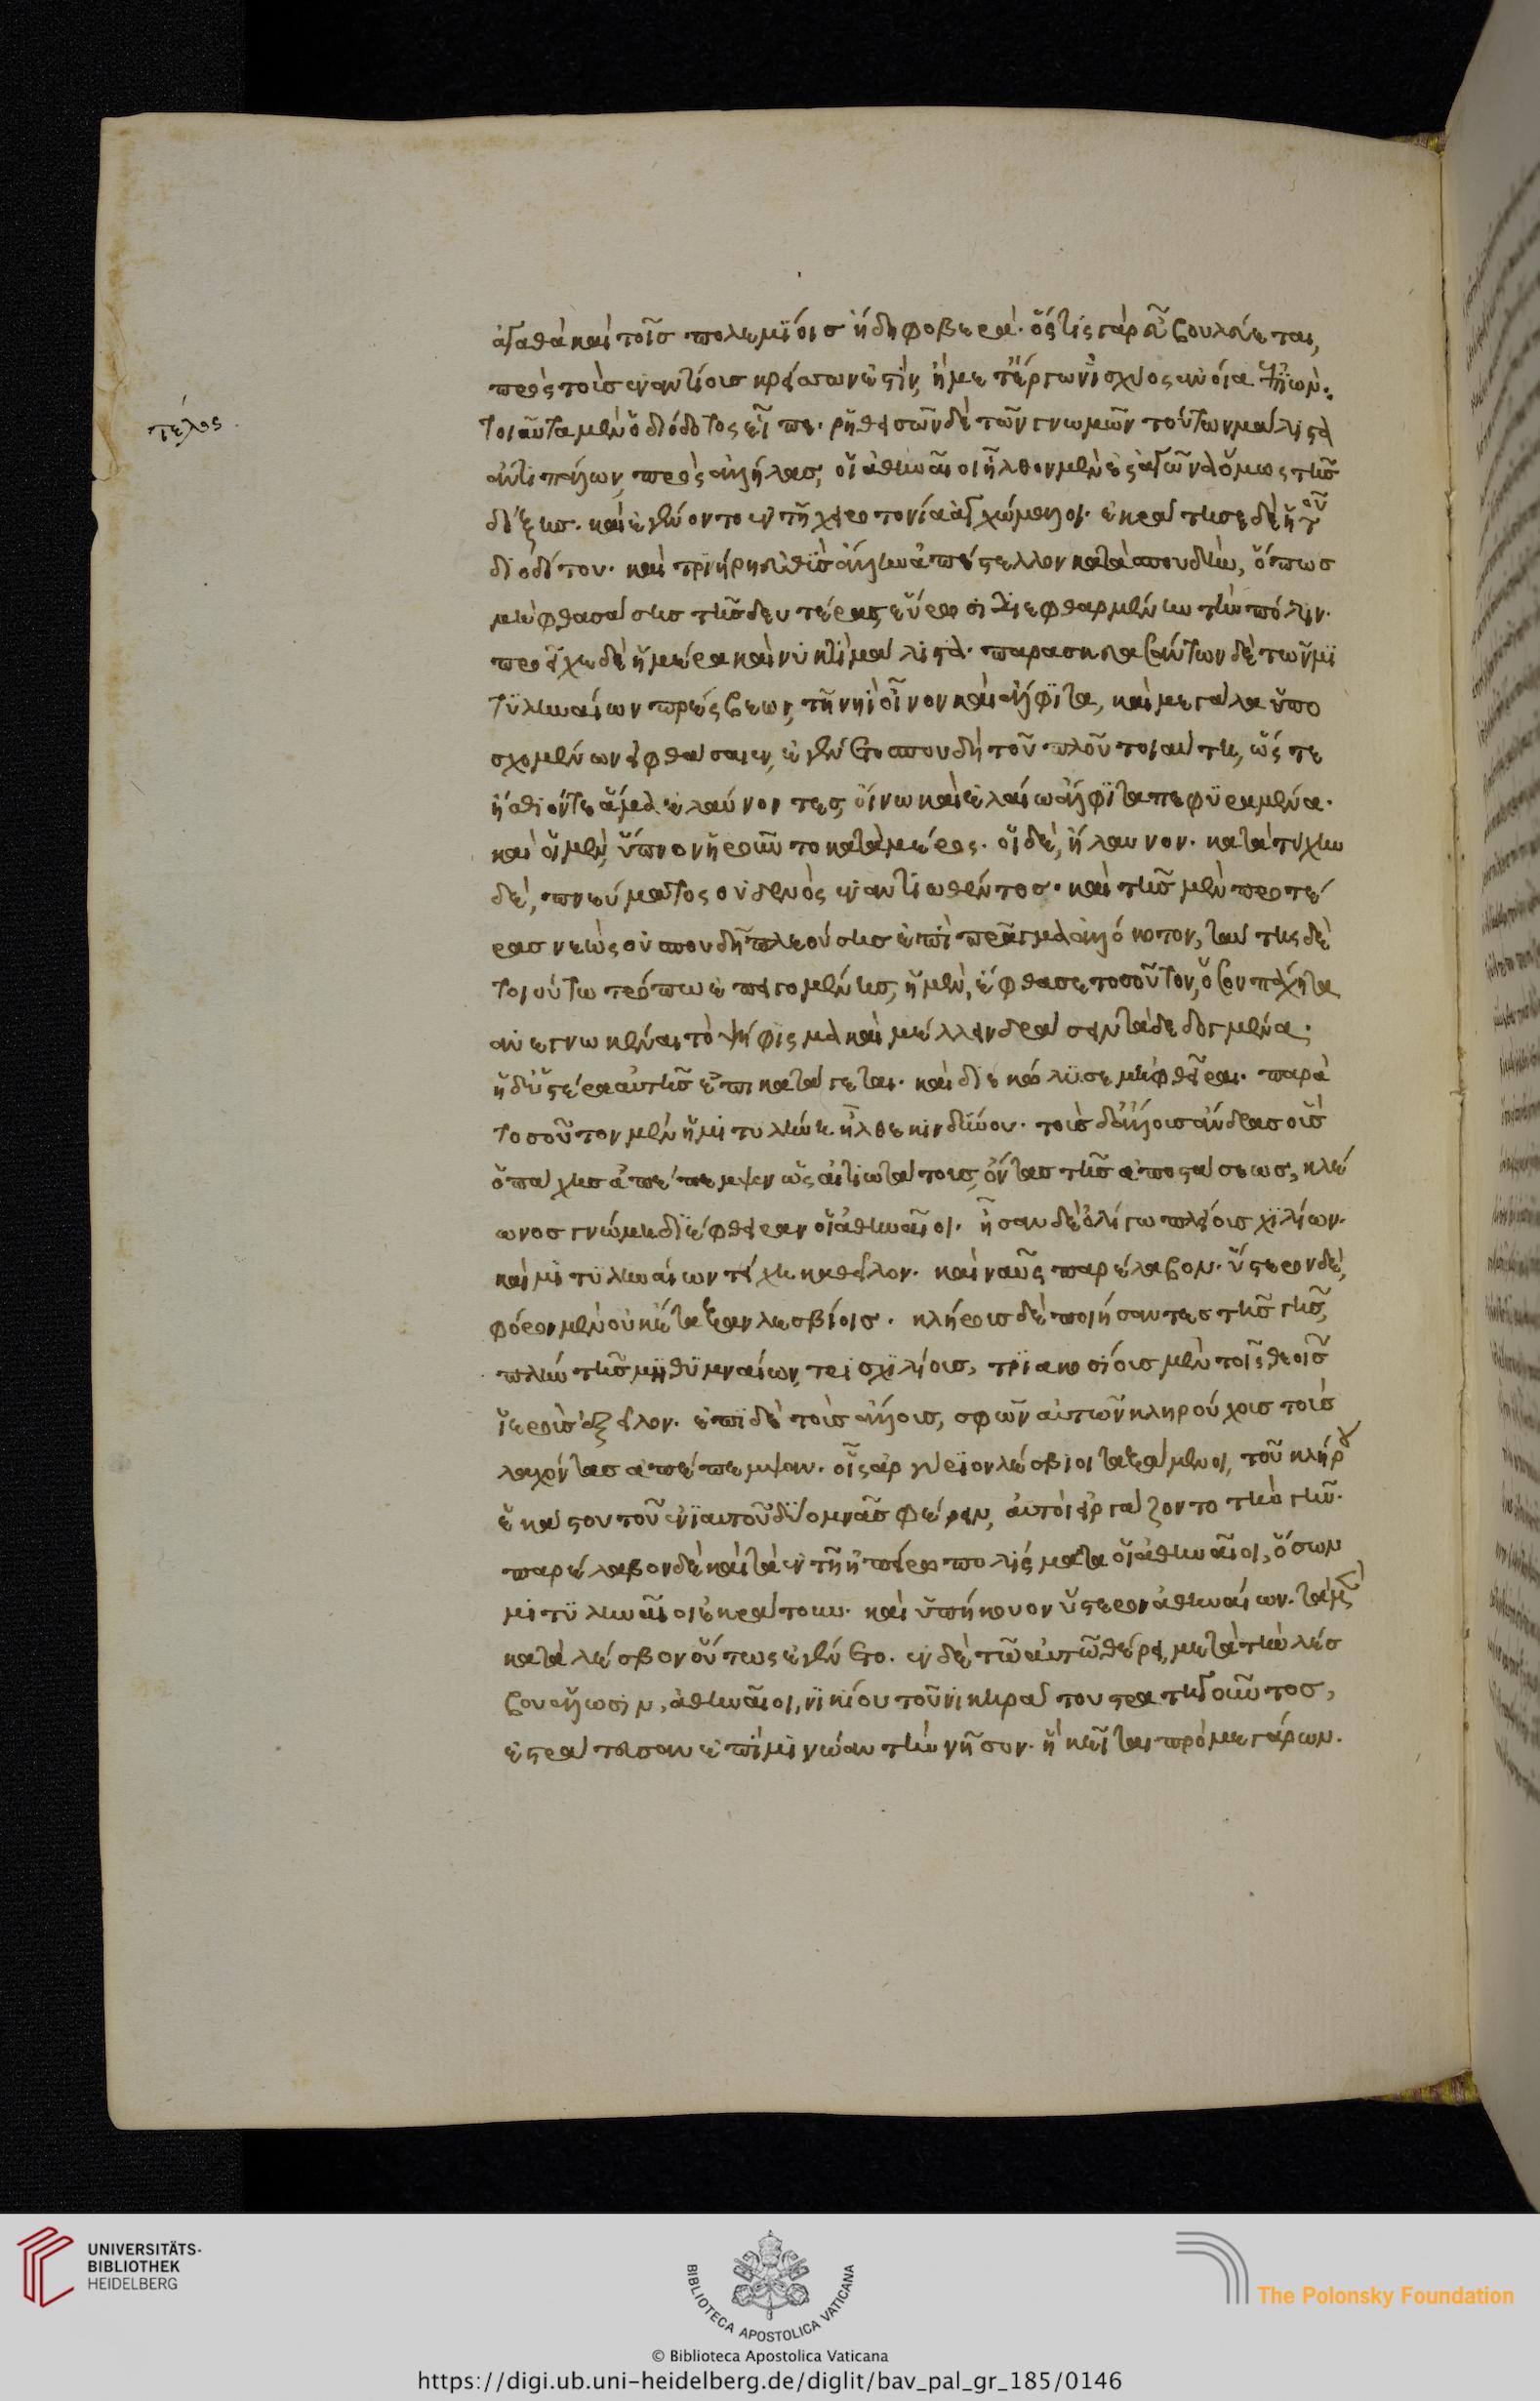 ἀγαθὰ καὶ τοῖς πολεμίοις ἤδη φοβερά· ὅστις γὰρ εὖ βουλεύεται,
πρὸς τοὺς ἐναντίους κρείσσων ἐστὶν, ἢ μετ' ἔργων ἰσχύος ἀνοία ἐπϊών.
τοιαῦτα μὲν ὁ διόδοτος εἶπε. ῥηθεισῶν δὲ τῶν γνωμῶν τούτων μάλιστα
τέλος
ἀντιπάλων πρὸς ἀλλήλας, οἱ ἀθηναῖοι ἦλθον μὲν ἐς ἀγῶνα ὅμως τῆς
δόξης. καὶ ἐγένοντο ἐν τῇ χειροτονία ἀγχώμαλοι. ἐκράτησε δὲ ἡ τοῦ
διοδότου. καὶ τριήρη εὐθὺς ἄλλην ἀπέστελλον κατὰ σπουδὴν, ὅπως
μὴ φθασάσης τῆς δευτέρας εὕρωσι διεφθαρμένην τὴν πόλιν.
προεῖχε δὲ ἡμέρα καὶ νυκτὶ μάλιστα. παρασκευασάντων δὲ τῶν μϊ
τυληναίων πρέσβεων, τῇ νηὶ οἶνον καὶ ἄλφιτα, καὶ μεγάλα ὑπο
σχομένων εἰ φθάσαιεν, ἐγένετο σπουδὴ τοῦ πλοῦ τοιαύτη, ὥστε
ἤσθιόν τε ἅμα ἐλαύνοντες, οἴνω καὶ ἐλαίω ἄλφιτα πεφυραμένα.
καὶ οἱ μὲν, ὕπνον ἡροῦντο κατὰ μέρος. οἱ δὲ, ἤλαυνον. κατὰ τύχην
δὲ, πνεύματος οὐδενὸς ἐναντιωθέντος. καὶ τῆς μὲν προτέ
ρας νεὼς οὐ σπουδῇ πλεούσης ἐπὶ πρᾶγμα ἀλλόκοτον, ταύτης δὲ
τοιούτω τρόπω ἐπειγομένης, ἡ μὲν, ἔφθασε τοσοῦτον, ὅσον πάχητα
ἀνεγνωκέναι τὸ ψήφισμα καὶ μέλλειν δράσειν τὰ δεδογμένα.
ἡ δ' ὑστέρα αὐτῆς ἐπικατάγεται. καὶ διεκώλυσε μὴ φθεῖραι. παρὰ
τοσοῦτον μὲν ἡ μιτυλήνη ἦλθε κινδύνου. τοὺς δ' ἄλλους ἄνδρας οὓς
ὁ πάχης ἀπέπεμψεν ὡς αἰτιωτάτους ὄντας τῆς ἀποστάσεως, κλέ
ωνος γνώμη διέφθειραν οἱ ἀθηναῖοι. ἦσαν δὲ ὀλίγω πλείους χιλίων.
καὶ μιτυληναίων τείχη καθεῖλον. καὶ ναῦς παρέλαβον. ὕστερον δὲ,
φόρον μὲν οὐκ ἔταξαν λεσβίοις. κλήρους δὲ ποιήσαντες τῆς γῆς,
πλὴν τῆς μηθυμναίων, τρισχιλίους, τριακοσίους μὲν τοῖς θεοῖς
ἱεροὺς ἐξεῖλον. ἐπὶ δὲ τοὺς ἄλλους, σφῶν αὐτῶν κληρούχους τοὺς
λαχόντας ἀπέπεμψαν. οἷς ἀργύριον λέσβιοι ταξάμενοι, τοῦ κλήρου
ἑκάστου τοῦ ἐνιαυτοῦ δύο μνᾶς φέρειν, αὐτοὶ εἰργάζοντο τὴν γῆν.
παρέλαβον δὲ καὶ τὰ ἐν τῇ ἠπείρω πολίσματα οἱ ἀθηναῖοι, ὅσων
μιτυληναῖοι ἐκράτουν. καὶ ὑπήκουον ὕστερον ἀθηναίων. τὰ μὲν
κατὰ λέσβον οὕτως ἐγένετο. ἐν δὲ τῶ αὐτῶ θέρει, μετὰ τὴν λέσ
βου ἅλωσιν, ἀθηναῖοι, νικίου τοῦ νικηράτου στρατηγοῦντος,
ἐστράτευσαν ἐπὶ μινώαν τὴν νῆσον. ἣ κεῖται πρὸ μεγάρων.
UNIVERSITÄTS-
BIBLIOTHEK
HEIDELBERG
BIBLIOTECA APOSTOLICA VATICANA
The Polonsky Foundation
© Biblioteca Apostolica Vaticana
https://digi.ub.uni-heidelberg.de/diglit/bav_pal_gr_185/0146